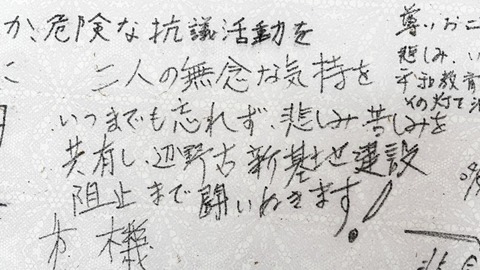 か、危険な抗議活動を
二人の無念な気持を
いつまでも忘れず、悲しみ苦しみを
共有し、辺野古新基地建設
阻止まで闘いぬきます!
機
に
尊いお二
悲しみ、い
平和教育